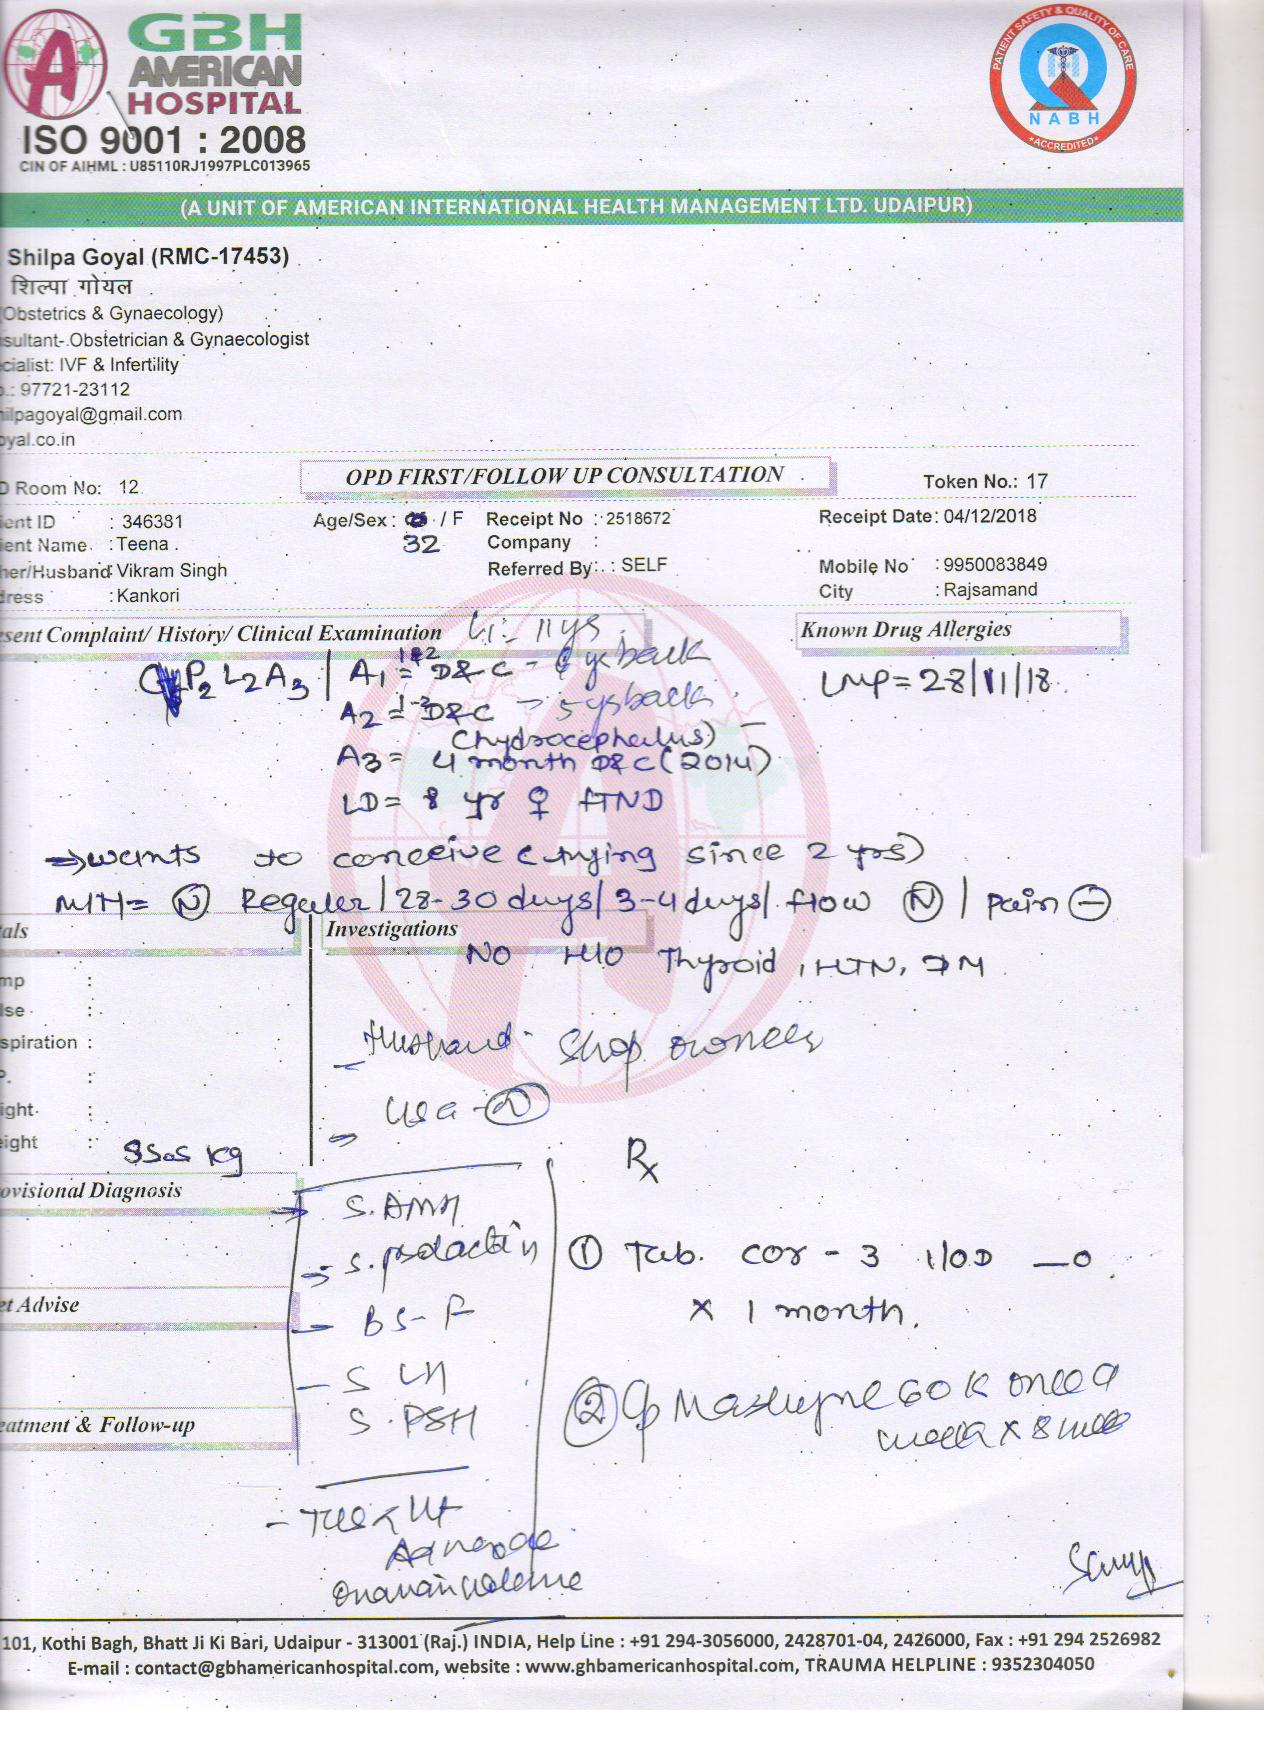 GBH
AMERICAN
HOSPITAL
ISO 9001 : 2008
CIN OF AIHML : U85110RJ1997PLC013965
PATIENT SAFETY & QUALITY OF CARE
NABH
ACCREDITED
(A UNIT OF AMERICAN INTERNATIONAL HEALTH MANAGEMENT LTD. UDAIPUR)
Shilpa Goyal (RMC-17453)
शिल्पा गोयल
(Obstetrics & Gynaecology)
sultant- Obstetrician & Gynaecologist
cialist: IVF & Infertility
.: 97721-23112
ilpagoyal@gmail.com
oyal.co.in
OPD FIRST/FOLLOW UP CONSULTATION
D Room No: 12
Token No.: 17
ient ID : 346381 Age/Sex : / F Receipt No : 2518672 Receipt Date: 04/12/2018
32
ient Name : Teena Company :
her/Husband: Vikram Singh Referred By: : SELF Mobile No : 9950083849
dress : Kankori City : Rajsamand
esent Complaint/ History/ Clinical Examination
Known Drug Allergies
P2 L2 A3 | A1 = D&C - back LMP = 28/11/18
A2 = D&C - 5 ys back
(hydrocephalus)
A3 = 4 month D&C (2014)
LD = 8 yr ♀ FTND
→ wants to conceive (trying since 2 yrs)
M/H = (N) Reguler / 28-30 days / 3-4 days / flow (N) / pain (-)
tals
Investigations
NO H/O Thyroid, HTN, DM
mp :
lse :
spiration :
P. :
ight :
eight :
Husband - Shop owner
Rx
ovisional Diagnosis
S. AMH
S. prolactin
① Tab. cor - 3 1/OD —0
x 1 month.
et Advise
BS-F
S LH
② Cp 60 K once a
week x 8
eatment & Follow-up
101, Kothi Bagh, Bhatt Ji Ki Bari, Udaipur - 313001 (Raj.) INDIA, Help Line : +91 294-3056000, 2428701-04, 2426000, Fax : +91 294 2526982
E-mail : contact@gbhamericanhospital.com, website : www.ghbamericanhospital.com, TRAUMA HELPLINE : 9352304050